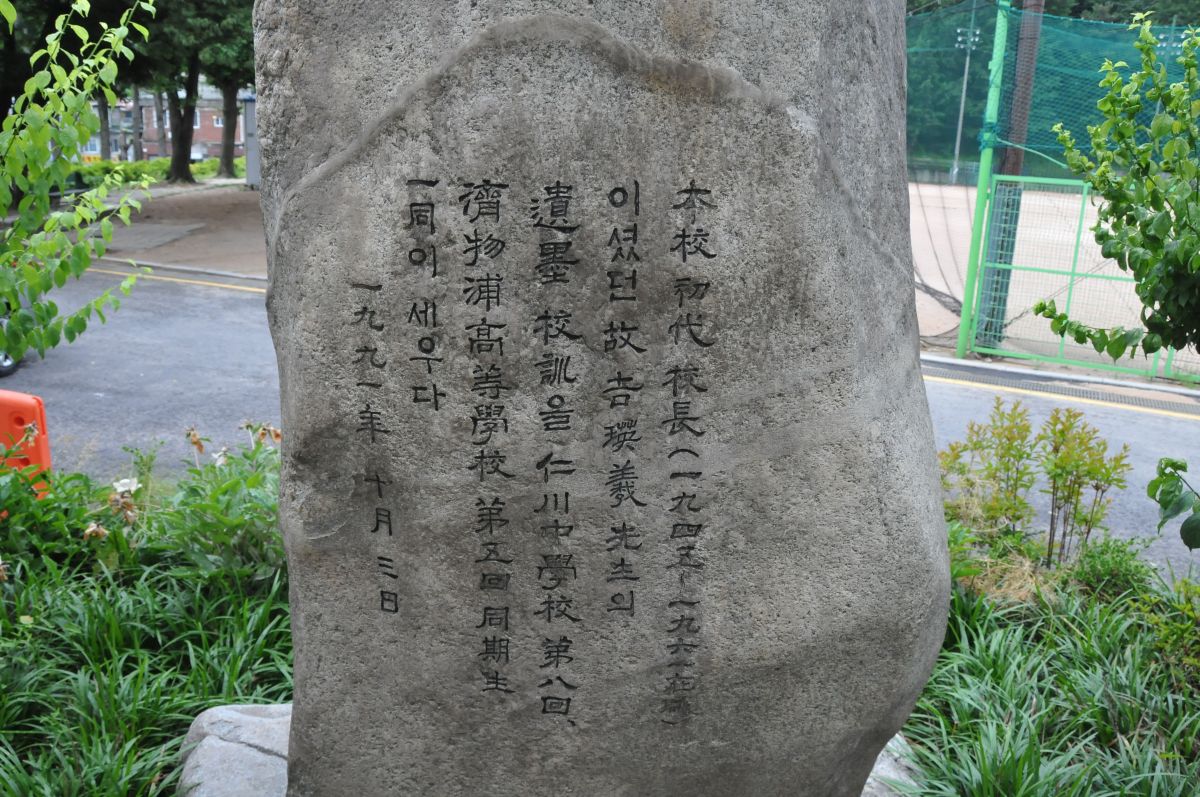 本校 初代 校長(一九四五-一九六一在職)
이셨던 故 吉瑛羲 先生의
遺墨 校訓을 仁川中學校 第八回、
濟物浦高等學校 第五回 同期生
一同이 세우다
一九九一年 十月 三日